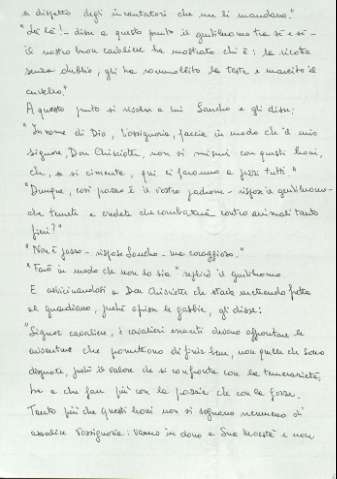 a dispetto degli incantatori che me li mandano."
"Là là! - disse a questo punto il gentiluomo tra sé e sé -
il nostro buon cavaliere ha mostrato chi è: la ricotta
senza dubbio, gli ha rammollito la testa e marcito il
cervello."
A questo punto si rivolse a lui Sancho e gli disse:
"In nome di Dio, Vossignoria, faccia in modo che il mio
signore, Don Chisciotte, non si misuri con questi leoni,
che, se si cimenta, qui ci faranno a pezzi tutti."
"Dunque, così pazzo è il vostro padrone - rispose il gentiluomo -
che temete e credete che combatterà contro animali tanto
fieri?"
"Non è pazzo - rispose Sancho - ma coraggioso."
"Farò in modo che non lo sia" replicò il gentiluomo.
E avvicinandosi a Don Chisciotte che stava mettendo fretta
al guardiano, perché aprisse le gabbie, gli disse:
"Signor cavaliere, i cavalieri erranti devono affrontare le
avventure che promettono di finir bene, non quelle che sono
disperate, perché il valore che si confonde con la temerarietà,
ha a che fare più con la pazzia che con la forza.
Tanto più che questi leoni non si sognano nemmeno di
assalire Vossignoria: vanno in dono a Sua Maestà e non